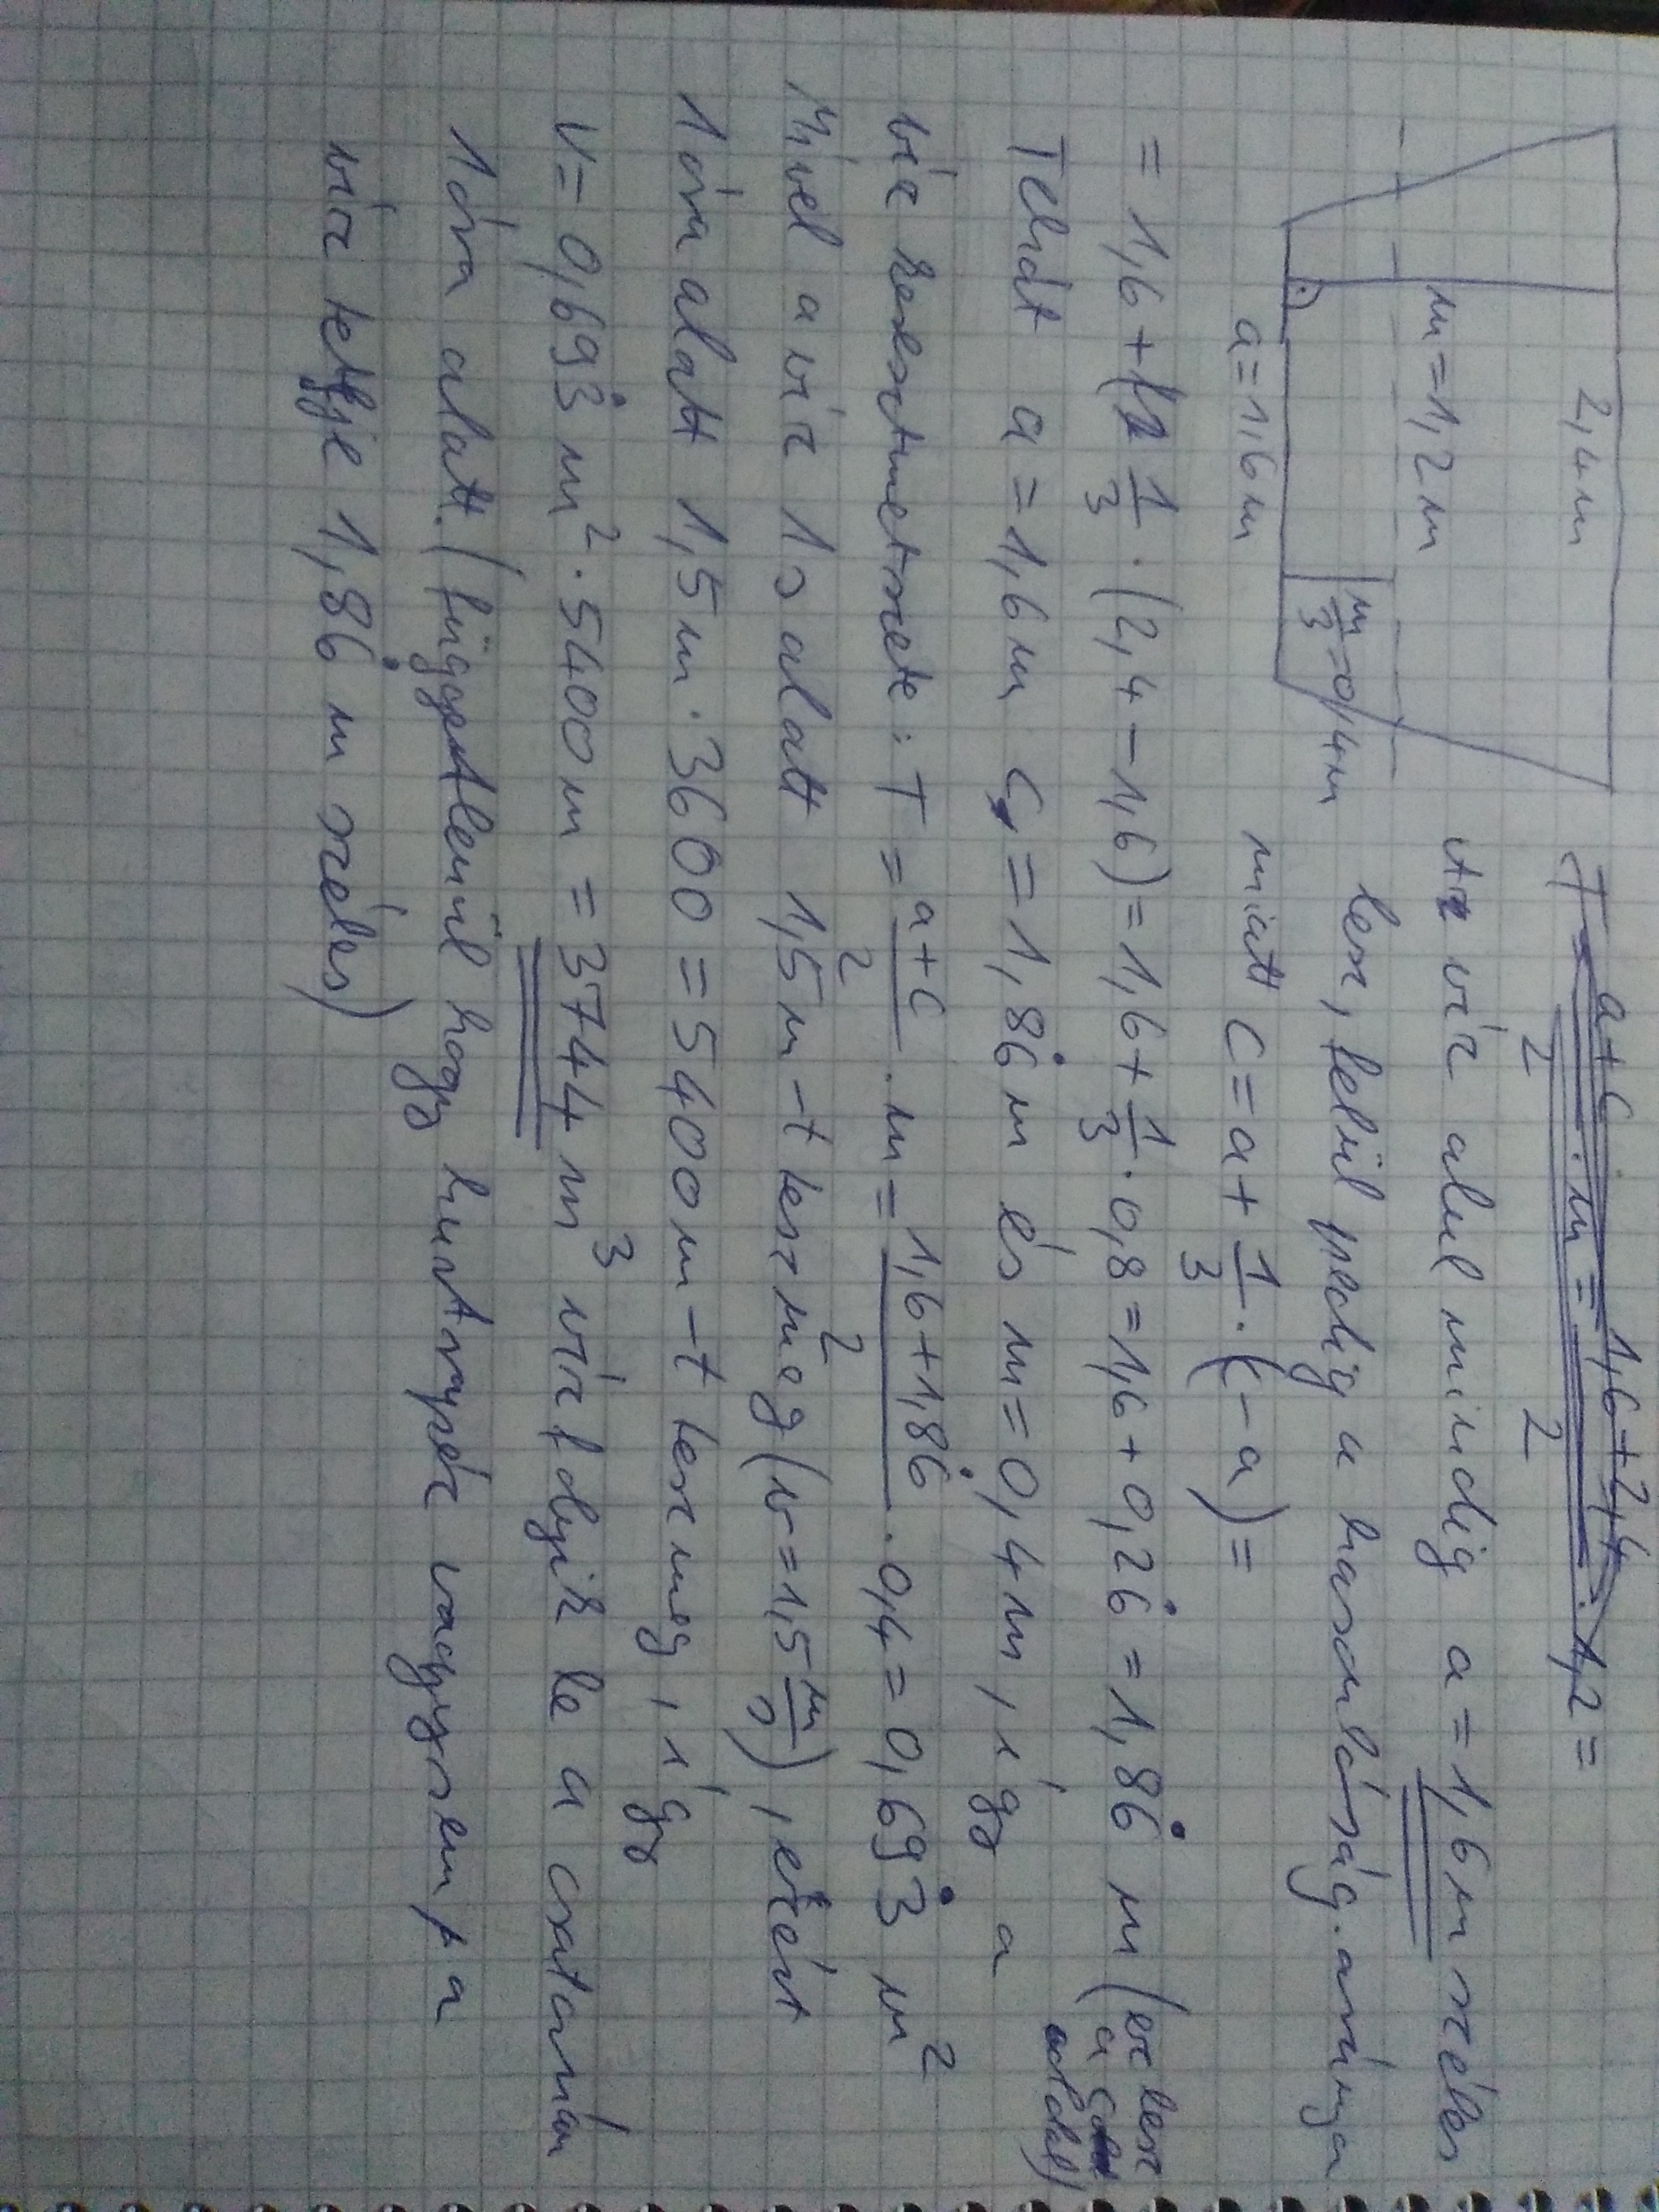 2,4m
m=1,2m
m/3=0,4m
a=1,6m
T=(a+c)/2·m=(1,6+2,4)/2·1,2=
Az víz alul mindig a=1,6m széles
lesz, felül pedig a hasonlóság aránya
miatt c=a+1/3·(-a)=
=1,6+1/3·(2,4-1,6)=1,6+1/3·0,8=1,6+0,26̇=1,86̇ m (ez lesz
a c
oldal)
Tehát a=1,6m c=1,86̇m és m=0,4m, így a
víz keresztmetszete: T=(a+c)/2·m=(1,6+1,86̇)/2·0,4=0,693̇ m²
Mivel a víz 1s alatt 1,5m-t tesz meg (v=1,5 m/s), ezért
1 óra alatt 1,5m·3600=5400m-t tesz meg, így
V=0,693̇ m²·5400m=3744 m³ víz folyik le a csatornán
1 óra alatt. (függetlenül hogy húrtrapéz vagy sem, a
víz tetje 1,86̇ m széles)